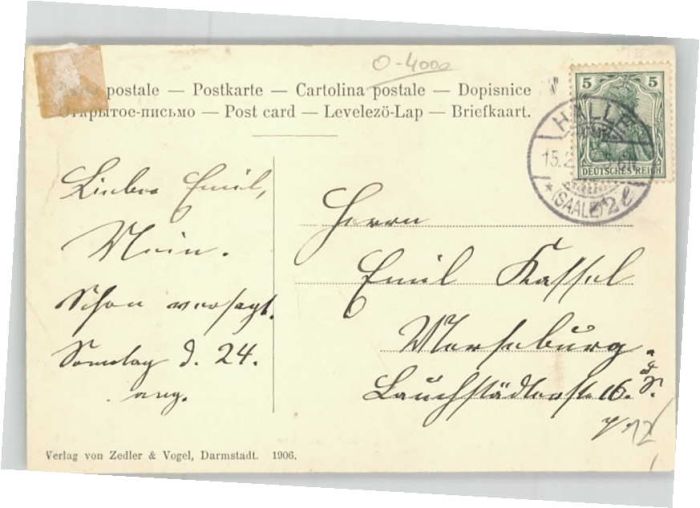 O-4000
postale — Postkarte — Cartolina postale — Dopisnice
Открытое-письмо — Post card — Levelező-Lap — Briefkaart.
5 5
DEUTSCHES REICH
HALLE
15.2
(SAALE) 2
Lieber Emil,
Nein.
Schon versagt.
Sonntag d. 24.
Herrn
Emil Kassel
Merseburg
a. S.
Lauchstädterstr. 16.
Verlag von Zedler & Vogel, Darmstadt. 1906.